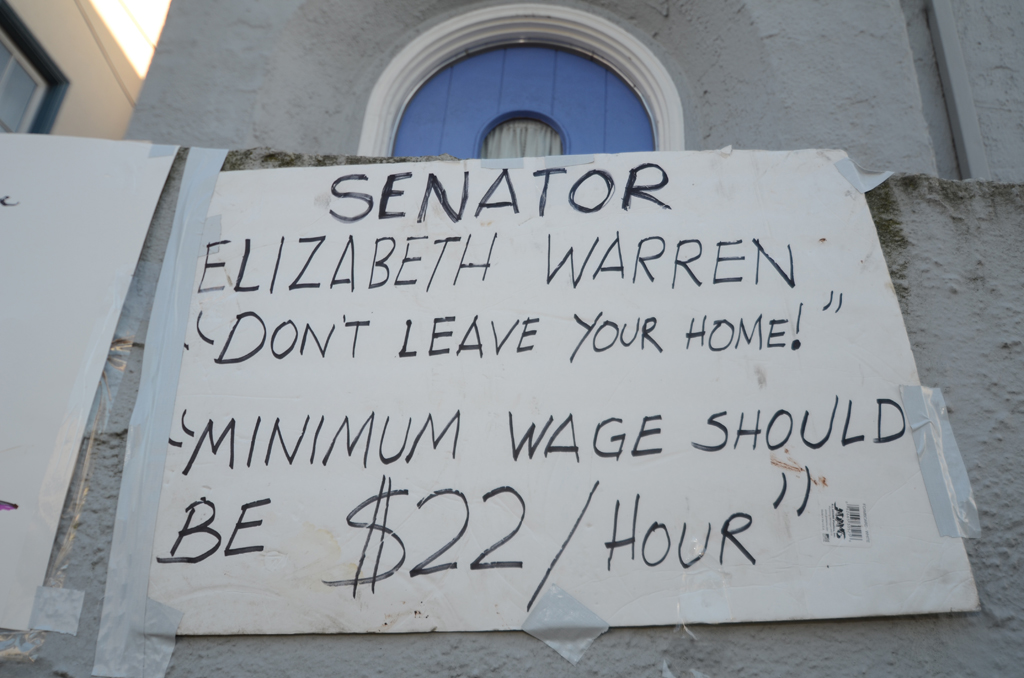 SENATOR
ELIZABETH WARREN
"DON'T LEAVE YOUR HOME!"
"MINIMUM WAGE SHOULD
BE $22/HOUR"